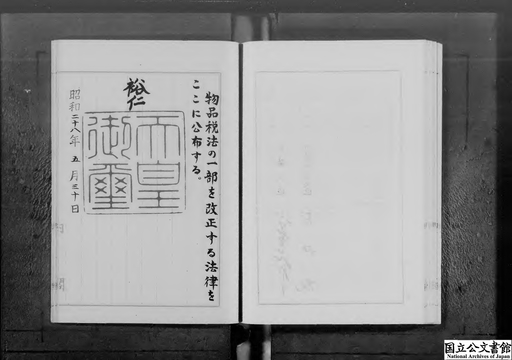 物品税法の一部を改正する法律を
ここに公布する。
裕仁
天皇
御璽
昭和二十八年五月三十日
国立公文書館
National Archives of Japan